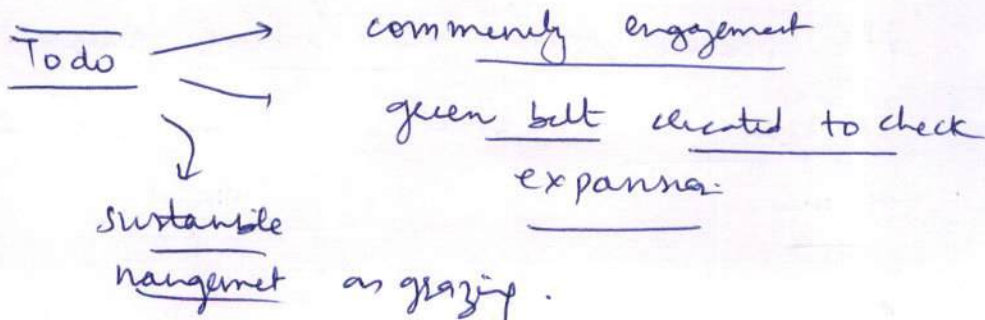 Todo
community engagement
green belt created to check
expansion.
sustainable
management as grazing.